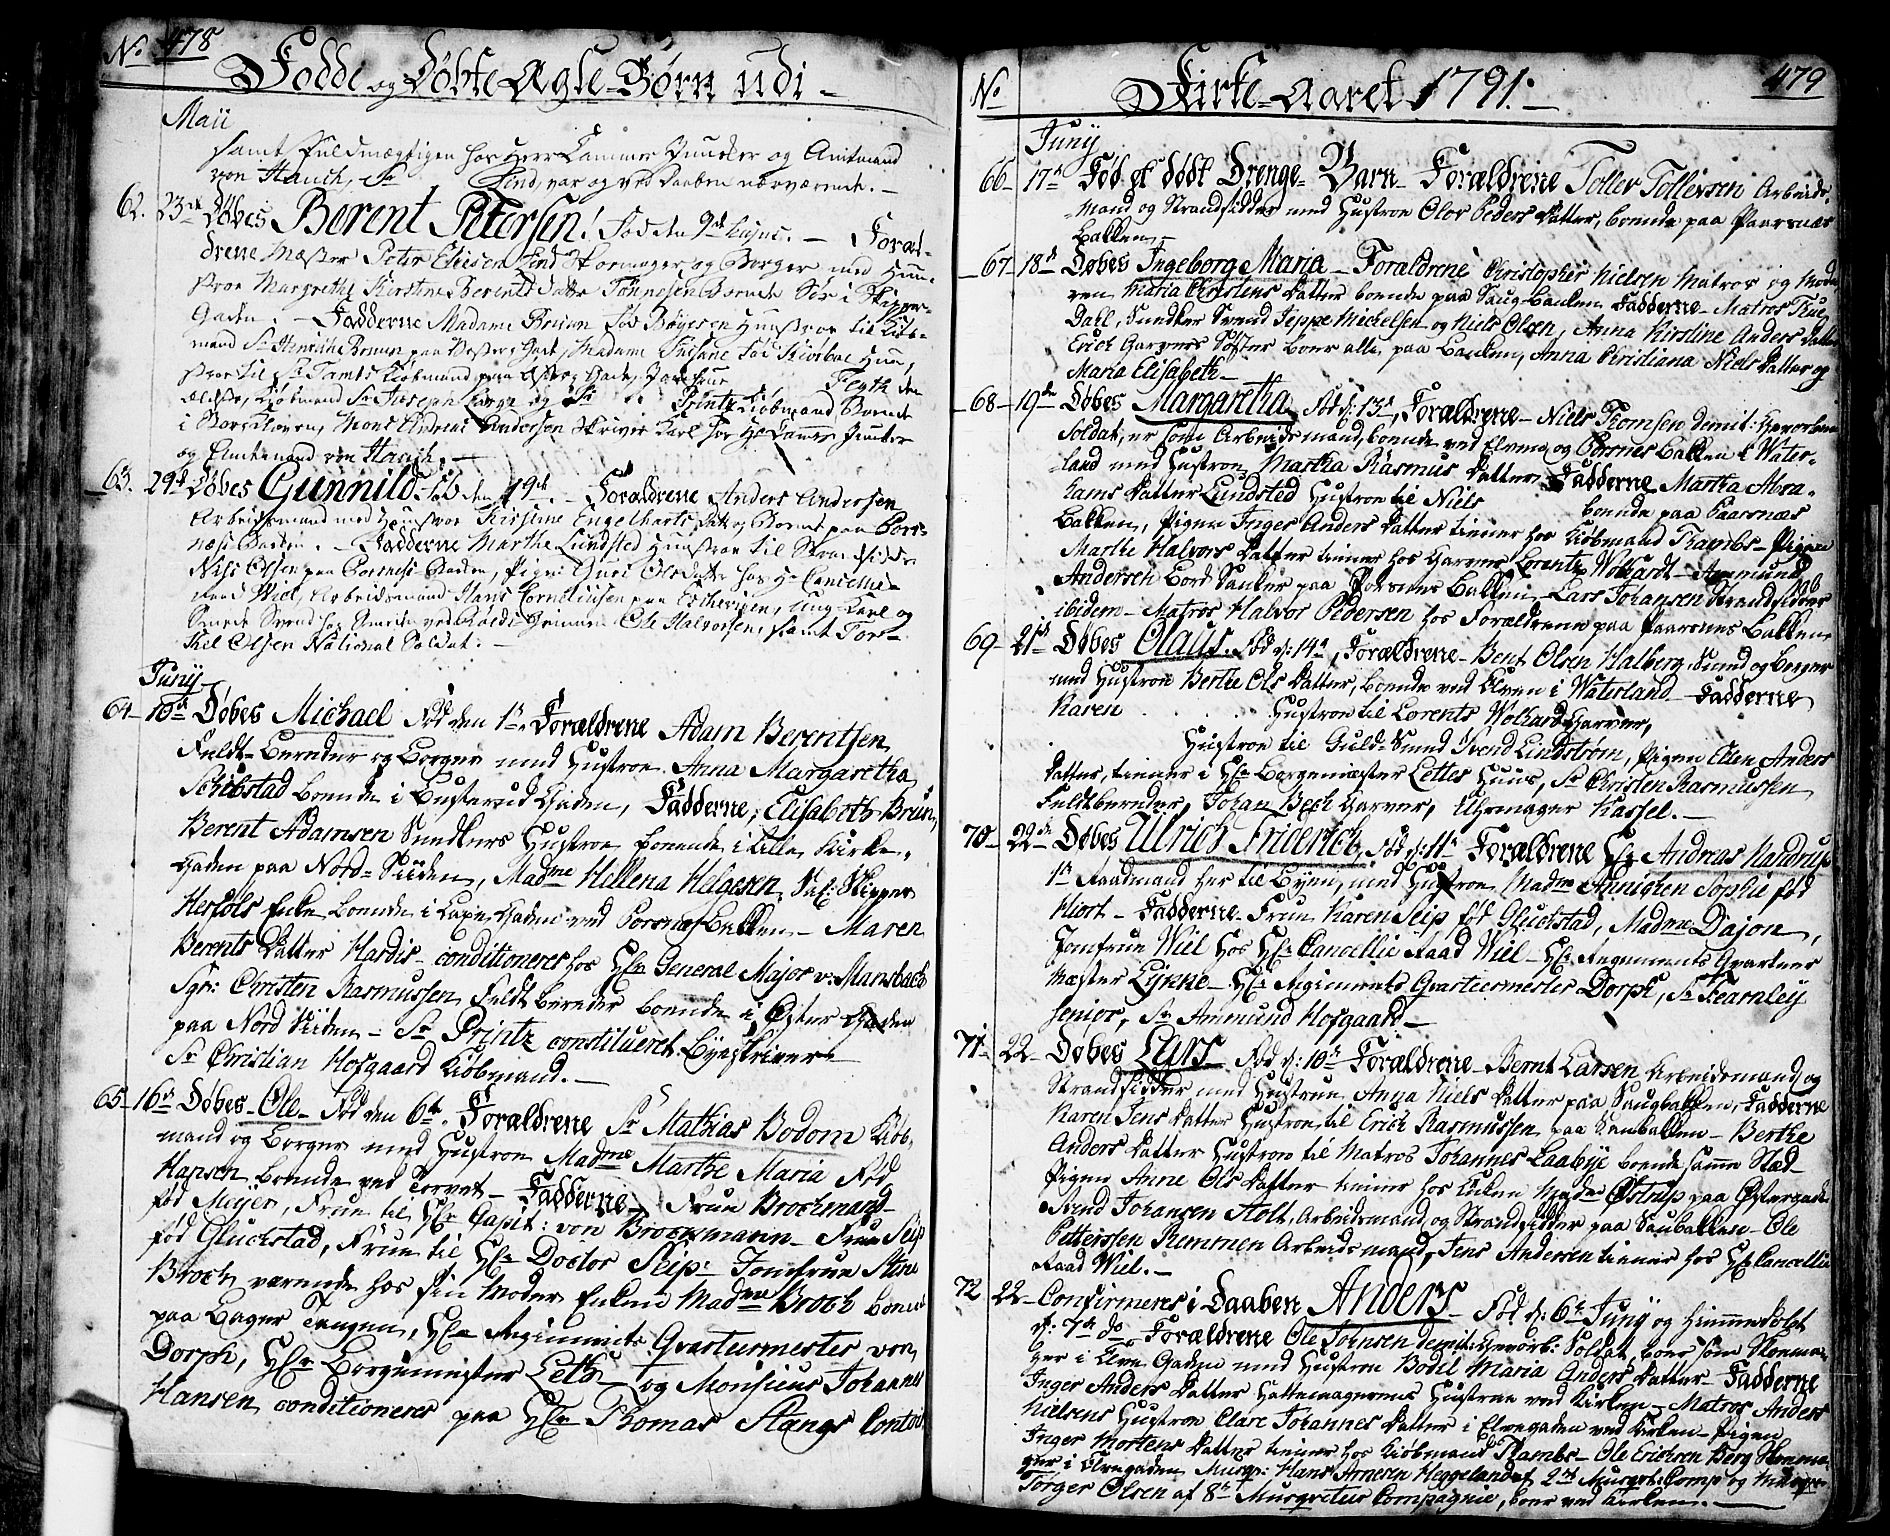 No. 478
Fødde og Døbte Ægte-Børn udi -
Maii
samt Fuldmægtigen hos Herr Cammer Juncker og Amtmand
von Hauch, Sr Lind, var og ved Daaben nærværende. -
62. 23de Døbes Berent Petersen! Fød den 9de hujus. - Foræl-
drene Mæster Peter Eliesen Lind Skomager og Borger med Huu-
stroe Margrethe Kirstine Berentsdatter Tønnesen Boende Sør i Skipper-
Gaden. - Fadderne Madame Bruun fød Bøyesen Hustroe til Kiøb-
mand Sr Henrich Bruun paa Vester Gade, Madame fød Kiørboe Huu-
stroe til Sr Tambs Kiøbmand paa Gade, Jomfrue Flygh den
ældste, Kiøbmand Sr Joseph og Sr Printz Kiøbmand Boende
i Mons. Andreas Andersen Skriver Karl hos Hr Cammer Juncker
og Amtmand von Hauch. -
63. 29de Døbes Gunnild. Fød den 19de. - Forældrene Anders Andersen
Arbeidsmand med Huustroe Kirstine Engelharts Datter Boende paa Pors-
næs Bakken. - Fadderne Marthe Lundsted Hustroe til Strandsidder
Niels Olsen paa Porsnæs Bakken, Pigen Guri Olsdatter hos Hr Cancellie-
raad Wiel, Arbeidsmand Hans Cornelieusen paa ung Karl og
Smede Svend hos Smeden ved Ole Halvorsen, samt Tor-
kel Olsen National Soldat. -
Junÿ
64 - 10de Døbes Michael Fød den 1ste Forældrene Adam Berentsen
Feldt-Bereder og Borger med Hustroe Anna Margaretha
Schibstad boende i Busterud Gaden, Fadderne, Elisabeth Bruun,
Berent Adamsen Snedkers Hustroe boende i Lille Kirke-
Gaden paa Nord-Siiden, Madme Hellena Helgesen, Sal: Skipper
Herfols Enke boende i Gaden ved Porsnæs Bakken - Maren
Berents Datter Hardis - conditionerer hos Hr General Major v: Mansbach
Sgr: Christen Rasmussen Feldt Bereder boende i Øster Gaden
paa Nord Siiden - Sr Printz constitueret Byeskriver
Sr Christian Hofgaard Kiøbmand. -
65 - 16de Døbes - Ole - Fød den 6te. Forældrene Sr Mathias Bodom Kiøb-
mand og Borger med Hustroe Madme Marthe Maria Fød
Hansen boende ved Torvet - Fadderne - Frue Brochmand
fød Meyer, Frue til Hr Capit: von Brockmann - Frue Seip
fød Gluckstad, Frue til Hr Doctor Seip: Jomfrue Stine
Broch værende hos sin Moder Enken Madme Broch boende
paa Tangen, Hr Regiments Qvarteermester von
Dorph, Hr Borgemester Leth og Monsieur Johannes
Hansen conditionerer paa Hr Thomas Stangs Contoir
No Kirke-Aaret 1791. - 479
Junÿ
66 - 17de Fød et dødt Drenge-Barn - Forældrene Toller Tollevsen Arbeids-
Mand og Strandsidder med Hustroe Olor Peders Datter, boende paa Paarsnæs
Bakken -
67 - 18de Døbes Ingeborg Maria - Forældrene Christopher Nielsen Matros og Mode-
ren Maria Christens Datter boende paa Saug-Bankken Fadderne - Matros True
Dahl, Snedker Svend Jeppe Michelsen og Niels Olsen, Anna Kirstine Anders Datter
Erich Garvers Søster boer alle paa Banken, Anna Christiana Niels Datter og
Maria Elisabeth -
68 - 19de Døbes Margaretha Fød d: 13de, Forældrene - Niels Thomsen demit: Hververne
Soldat, er som Arbeidsmand, boende ved Elven og Porsnes Bakken i Water-
land med Hustroe Martha Rasmus Datter Fadderne Martha Abra-
hams Datter Lundsted Hustroe til Niels boende paa Paarsnæs
Bakken, Pigen Inger Anders Datter tienner hos Kiøbmand Trambs - Pigen
Marthe Halvors Datter tienner hos Garver Lorentz Wolhardt - Ammund
Andersen Bord Sauker paa Porsnes Bakken - Lars Johansen Strandsidder
ibidem - Matros Halvor Pedersen hos Forældrene paa Paarsnes Bakken
69 - 21de Døbes Olaus. Fød d: 14de, Forældrene - Bent Olsen Halberg Smed og Borger
med Hustroe Berthe Ols Datter, boende ved Elven i Waterland - Fadderne
Karen Hustroe til Lorents Wolhard Garver,
Hustroe til Guld-Smed Svend Lindstrøm, Pigen Ellen Anders
Datter, tienner i Hr Borgemester Lettes Huus, Sr Christen Rasmussen
Feldtbereder, Johan Bech Garver, Uhrmager Kassel. -
70 - 22de Døbes Ulrich Friderich, Fød d: 11te Forældrene Hr Andreas Nandrup
1ste Raadmand her til Byen, med Hustroe Madme Annichen Sophie fød
Hiort - Fadderne - Frue Karen Seip fød Gluckstad, Madme Dajon,
Jomfrue Wiel hos Hr Cancellie Raad Wiel - Hr Regiments Qvarteer
Mæster Lykke - Hr Regiments Qvarteermester Dorph, Sr Fearnley
senior, Sr Ammund Hofgaard -
71 - 22 - Døbes Lars Fød d: 10de Forældrene - Bernt Larsen Arbeidsmand og
Strandsidder med Hustroe Anna Niels Datter paa Saugbakken, Fadderne
Karen Jens Datter Hustroe til Erich Rasmussen paa Saubakken - Berthe
Anders Datter Hustroe til Matros Johannes Laabÿe boende samme Stæd -
Pigen Anne Ols Datter tienner hos Enken Madme Østrup paa Østergade
Svend Johansen Holt, Arbeidsmand og Strandsidder paa Saubakken - Ole
Pettersen Remmen Arbeidsmand, Jens Andersen tienner hos Hr Cancellie
Raad Wiel. -
72 22 - Confirmeres i Daaben Anders Fød d: 6te Junÿ og hiemmedøbt
d: 7de do Forældrene Ole Johnsen demit: Hverv: Soldat, boer som Skoma-
ger i Elve Gaden med Hustroe Bodil Maria Anders Datter - Fadderne
Inger Anders Datter Hattemagerens Hustroe ved Kirken - Matros Anders
Nielsens Hustroe Clare Johannes Datter i Elvegaden ved Kirken - Pigen
Inger Mortens Datter tienner hos Kiøbmand Tambs - Ole Erichsen Berg Skoma-
ger i Elvegaden Musqs: Hans Arnesen Heggeland af 2det Musqt: Comp og Musqs
Torger Olsen af 8de Musqveteer Compagnie, boer ved Kirken. -